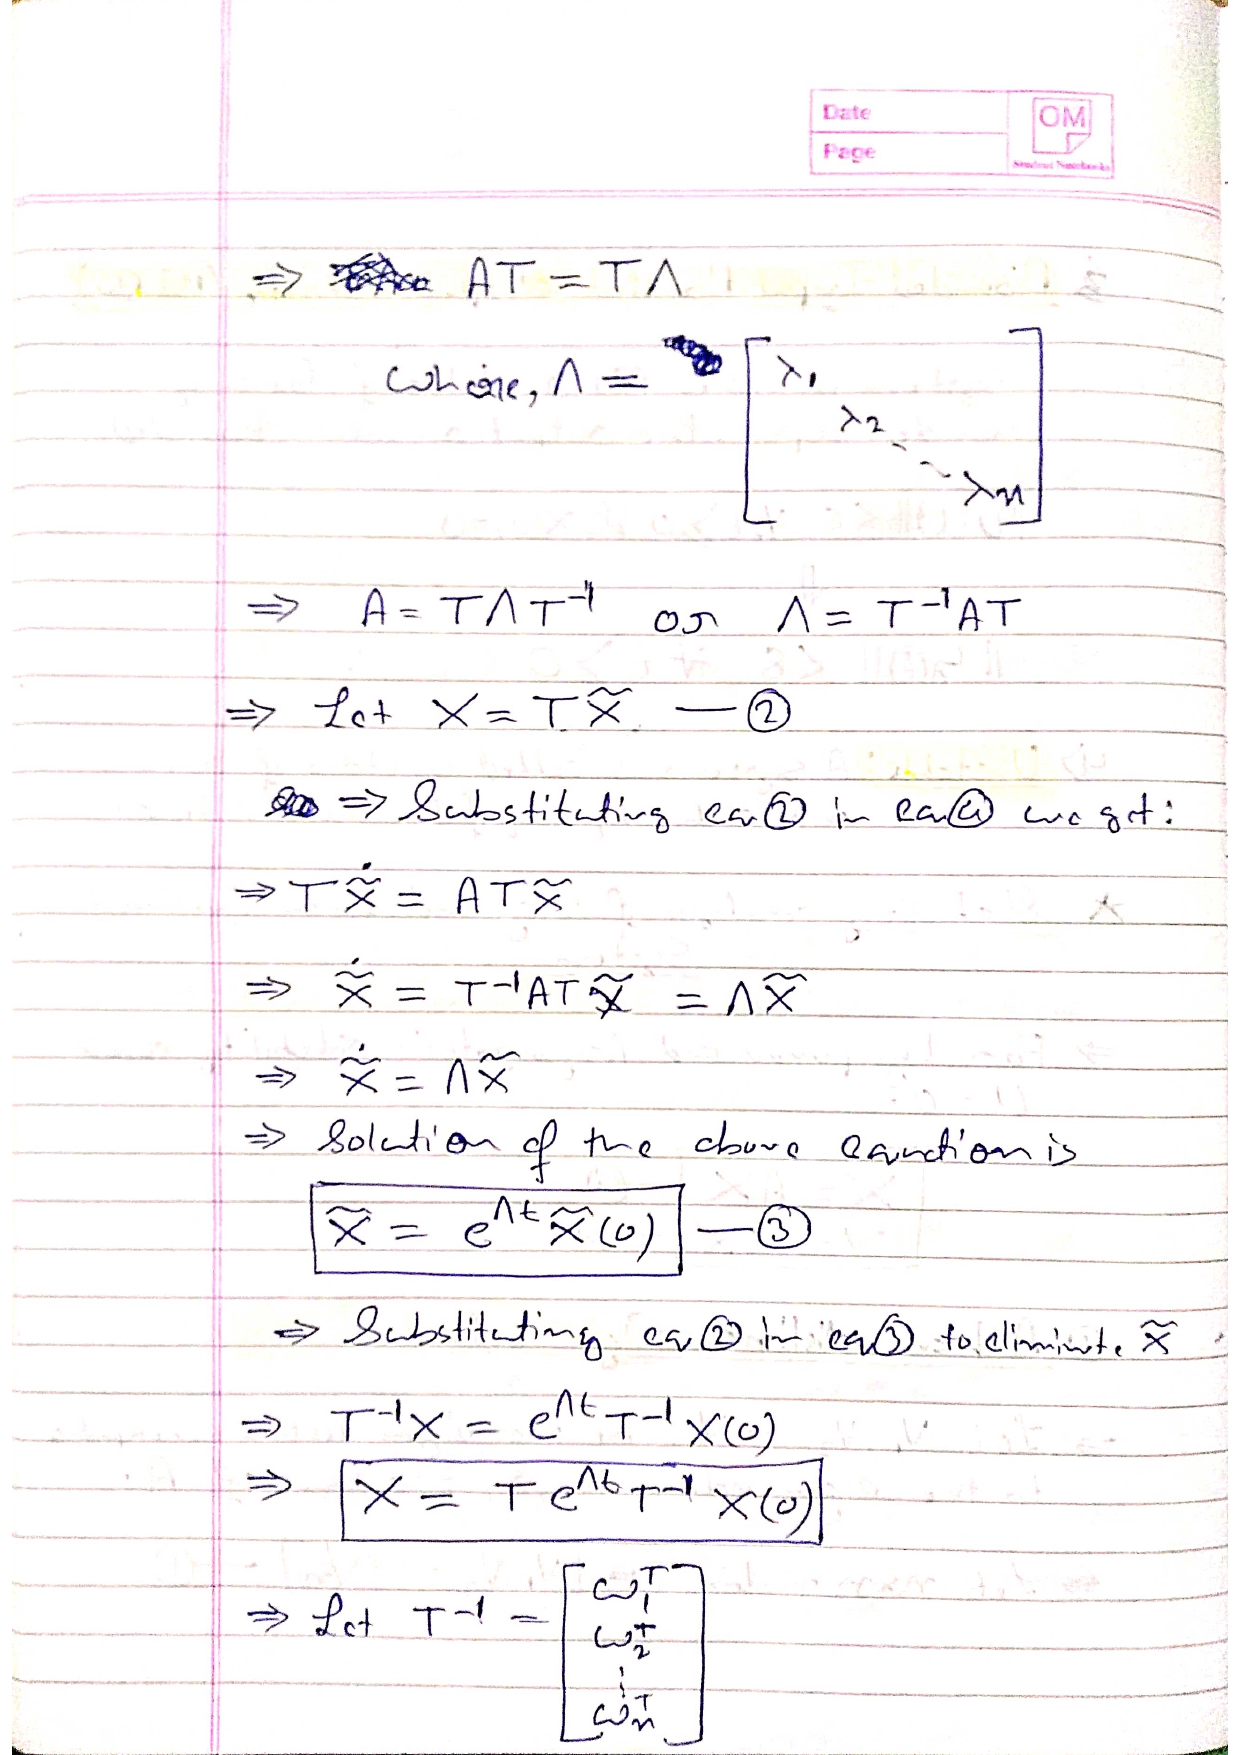 Date
OM
Page
Student Notebooks
⇒ AT = TΛ
where, Λ = [λ1
λ2
λn]
⇒ A = TΛT⁻¹ or Λ = T⁻¹AT
⇒ Let X = TX̃ — ②
⇒ Substituting eq ② in eq we get:
⇒ TẊ̃ = ATX̃
⇒ Ẋ̃ = T⁻¹ATX̃ = ΛX̃
⇒ Ẋ̃ = ΛX̃
⇒ Solution of the above equation is
X̃ = e^Λt X̃(0) — ③
⇒ Substituting eq ② in eq ③ to eliminate X̃
⇒ T⁻¹X = e^Λt T⁻¹ X(0)
⇒ X = T e^Λt T⁻¹ X(0)
⇒ Let T⁻¹ = [ω1^T
ω2^T
ωn^T]